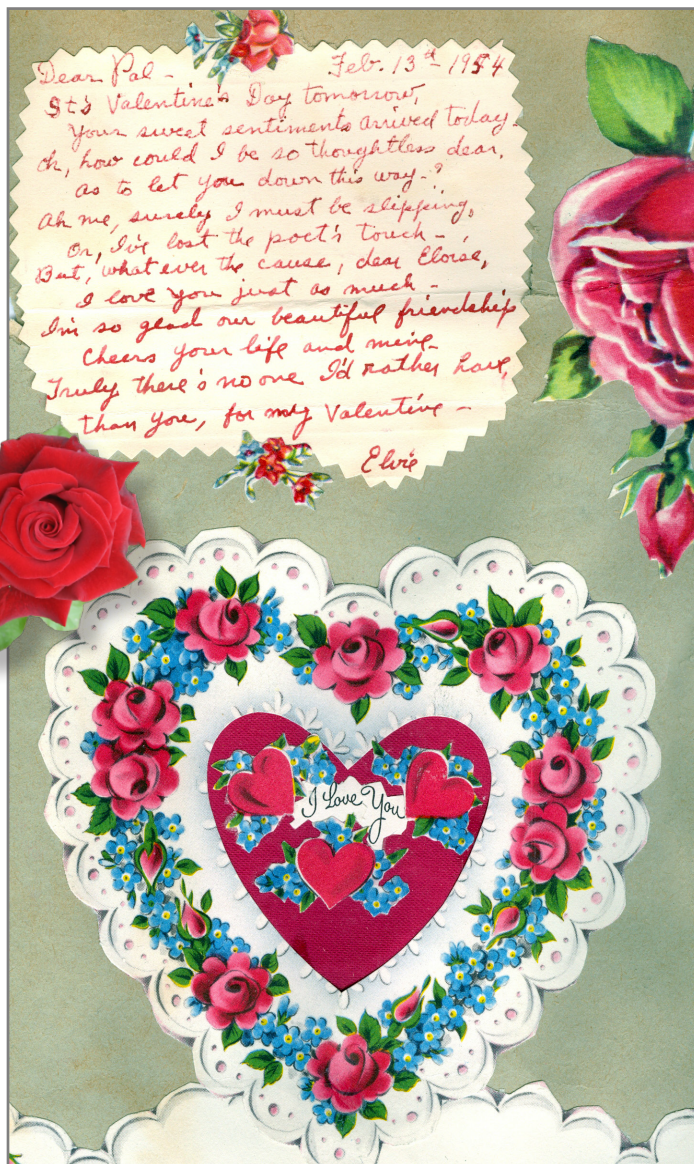 Dear Pal - Feb. 13th - 1954
It's Valentine's Day tomorrow,
Your sweet sentiments arrived today -
Oh, how could I be so thoughtless dear,
as to let you down this way - ?
Ah me, surely I must be slipping,
Or, I've lost the poet's touch -
But, what ever the cause, dear Eloise,
I love you just as much -
I'm so glad our beautiful friendship
Cheers your life and mine -
Truly there's no one I'd rather have,
than you, for my Valentine -
Elvie
I Love You